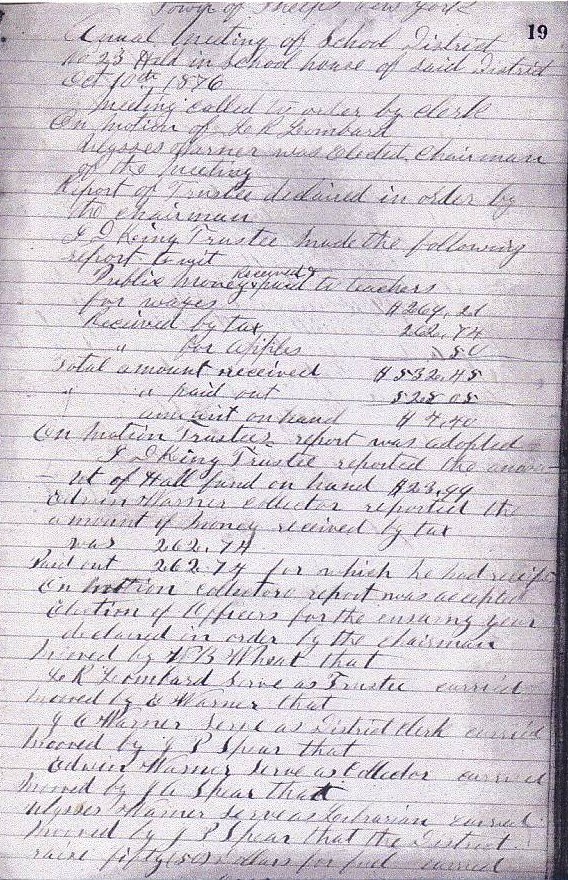 Town of Phelps New York
19
Annual Meeting of School District
No 23 Held in School house of said District
Oct 10th 1876
Meeting called to order by clerk
On motion of L R Lombard
Ulysses Warner was elected Chairman
of the meeting
Report of Trustee declared in order by
the chairman
J L King Trustee made the following
report to wit
Public money received & paid to teachers
for wages $269.21
Received by tax 262.74
" for apples .50
Total amount received $532.45
" " paid out 525.05
amount on hand $7.40
On motion Trustees report was adopted
J L King Trustee reported the amou-
nt of Hall fund on hand $23.99
Edwin Warner Collector reported the
amount of money received by tax
was 262.74
Paid out 262.74 for which he had recipt
On motion collectors report was accepted
Election of Officers for the ensuing year
declared in order by the chairman
Moved by W B Wheat that
L R Lombard Serve as Trustee carried
Moved by E Warner that
J A Warner Serve as District Clerk carried
Mooved by J P Spear that
Edwin Warner Serve as Collector carried
Moved by J A Spear that
Ulysses Warner serve as Librarian carried
Moved by J P Spear that the District
raise fifty dolars for fuel carried